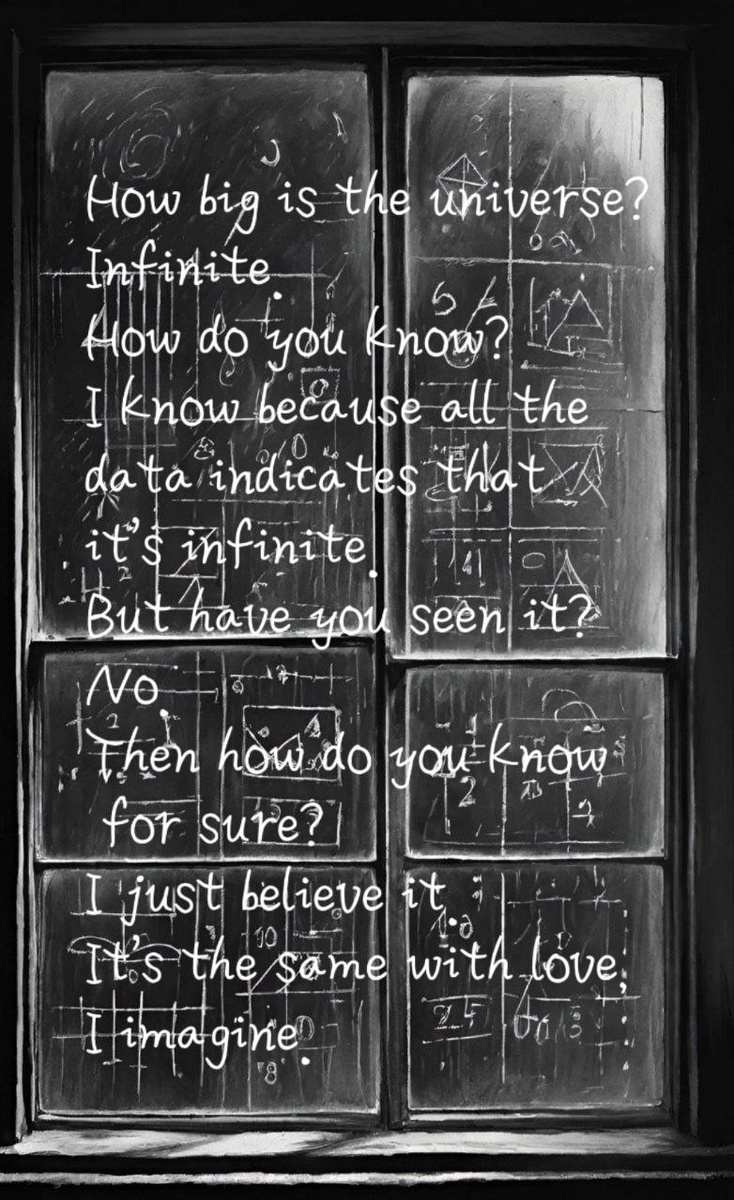 How big is the universe?
Infinite.
How do you know?
I know because all the
data indicates that
it's infinite.
But have you seen it?
No.
Then how do you know
for sure?
I just believe it.
It's the same with love,
I imagine.